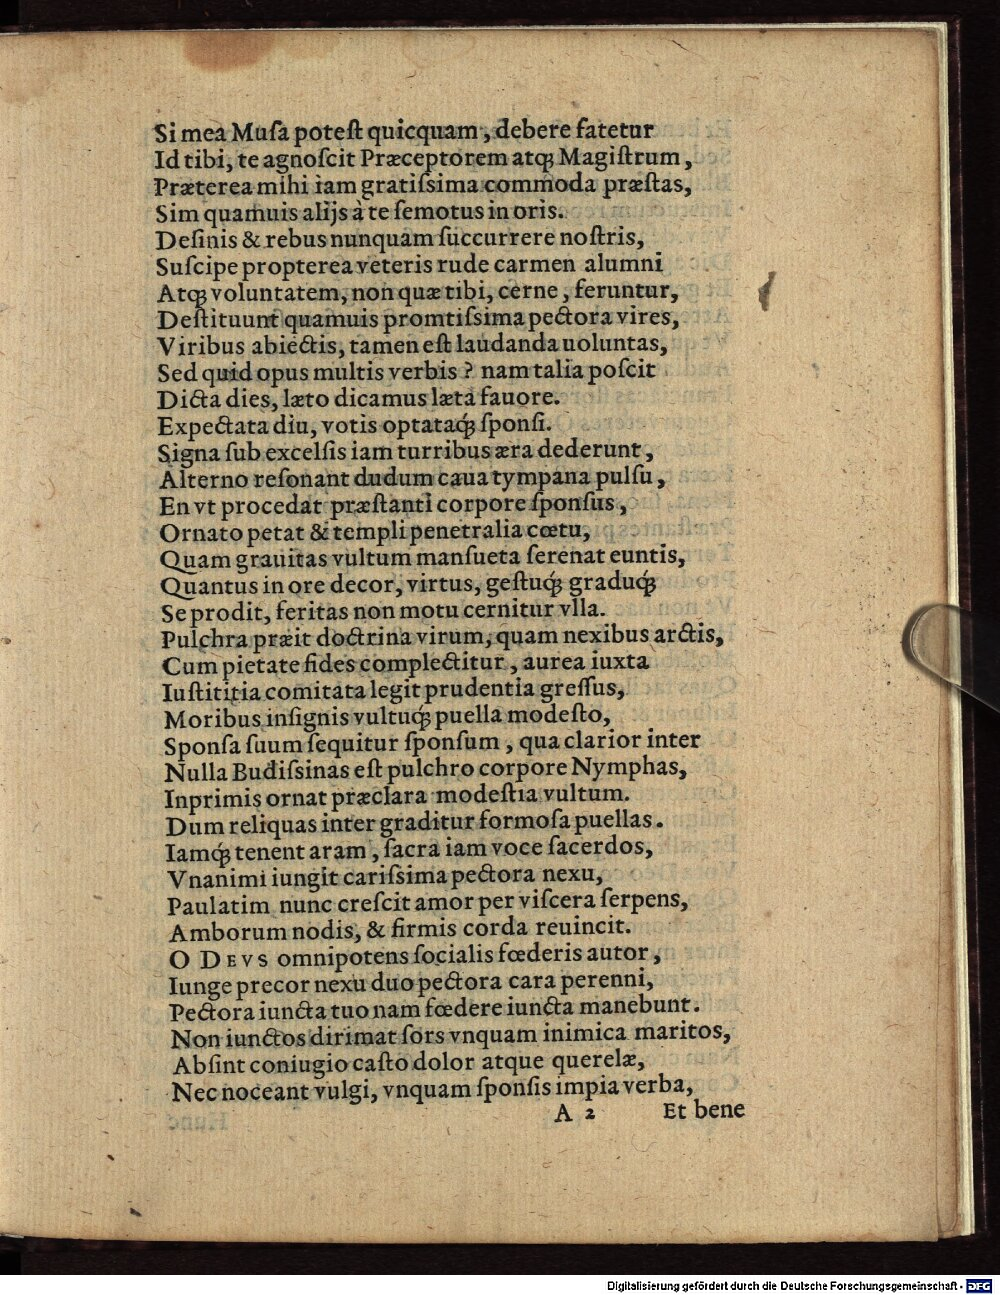 Si mea Muſa poteſt quicquam, debere fatetur
Id tibi, te agnoſcit Præceptorem atq́; Magiſtrum,
Præterea mihi iam gratiſsima commoda præſtas,
Sim quamuis alijs à te ſemotus in oris.
Deſinis & rebus nunquam ſuccurrere noſtris,
Suſcipe propterea veteris rude carmen alumni
Atq́; voluntatem, non quæ tibi, cerne, feruntur,
Deſtituunt quamuis promtiſsima pectora vires,
Viribus abiectis, tamen eſt laudanda uoluntas,
Sed quid opus multis verbis? nam talia poſcit
Dicta dies, læto dicamus læta fauore.
Expectata diu, votis optataq́; ſponſi.
Signa ſub excelſis iam turribus æra dederunt,
Alterno reſonant dudum caua tympana pulſu,
En vt procedat præſtanti corpore ſponſus,
Ornato petat & templi penetralia cœtu,
Quam grauitas vultum manſueta ſerenat euntis,
Quantus in ore decor, virtus, geſtuq́; graduq́;
Se prodit, feritas non motu cernitur vlla.
Pulchra præit doctrina virum, quam nexibus arctis,
Cum pietate fides complectitur, aurea iuxta
Iuſtititia comitata legit prudentia greſſus,
Moribus inſignis vultuq́; puella modeſto,
Sponſa ſuum ſequitur ſponſum, qua clarior inter
Nulla Budiſsinas eſt pulchro corpore Nymphas,
Inprimis ornat præclara modeſtia vultum.
Dum reliquas inter graditur formoſa puellas.
Iamq́; tenent aram, ſacra iam voce ſacerdos,
Vnanimi iungit cariſsima pectora nexu,
Paulatim nunc creſcit amor per viſcera ſerpens,
Amborum nodis, & firmis corda reuincit.
O DEVS omnipotens ſocialis fœderis autor,
Iunge precor nexu duo pectora cara perenni,
Pectora iuncta tuo nam fœdere iuncta manebunt.
Non iunctos dirimat ſors vnquam inimica maritos,
Abſint coniugio caſto dolor atque querelæ,
Nec noceant vulgi, vnquam ſponſis impia verba,
A 2 Et bene
Digitalisierung gefördert durch die Deutsche Forschungsgemeinschaft - DFG